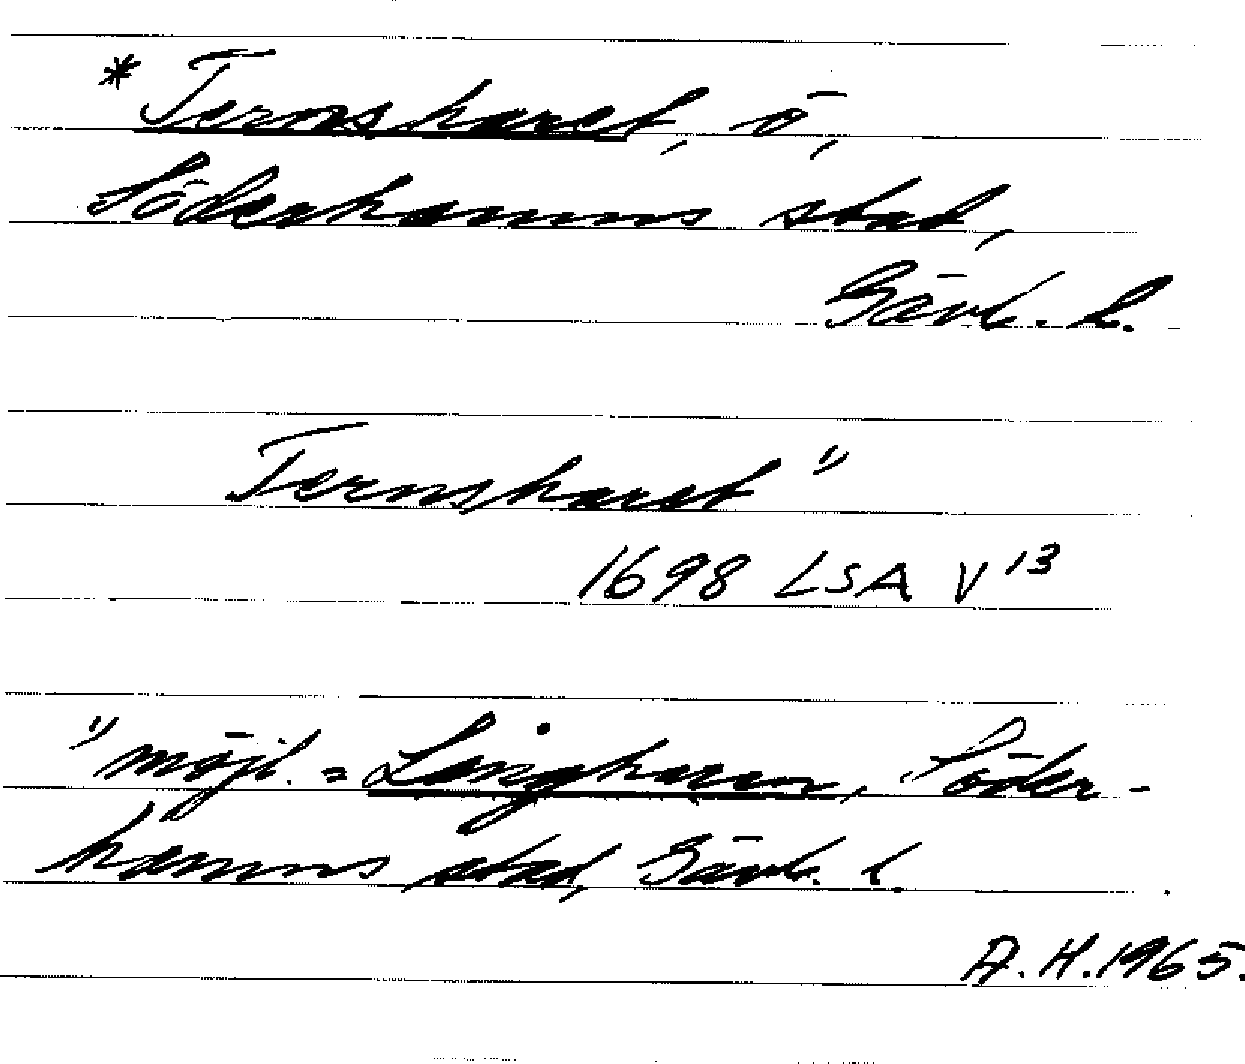 * Ternsharet, ö,
Söderhamns stad,
Gävl. l.
Ternsharet ¹⁾
1698 LSA V 13
¹⁾ möjl. = Långharen, Söder-
hamns stad, Gävl. l.
A. H. 1965.